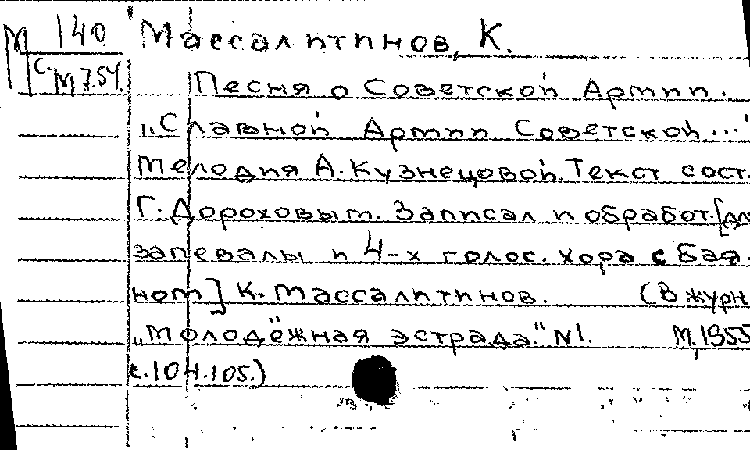 М 140 Массалитинов, К.
С. М 754.
Песня о Советской Армии.
„Славной Армии Советской..."
Мелодия А. Кузнецовой. Текст сост.
Г. Дороховым. Записал и обработ. [дл
запевалы и 4-х голос. хора с бая-
ном] К. Массалитинов. (В журн
„Молодёжная эстрада." №1. М, 1955
с. 104-105.)